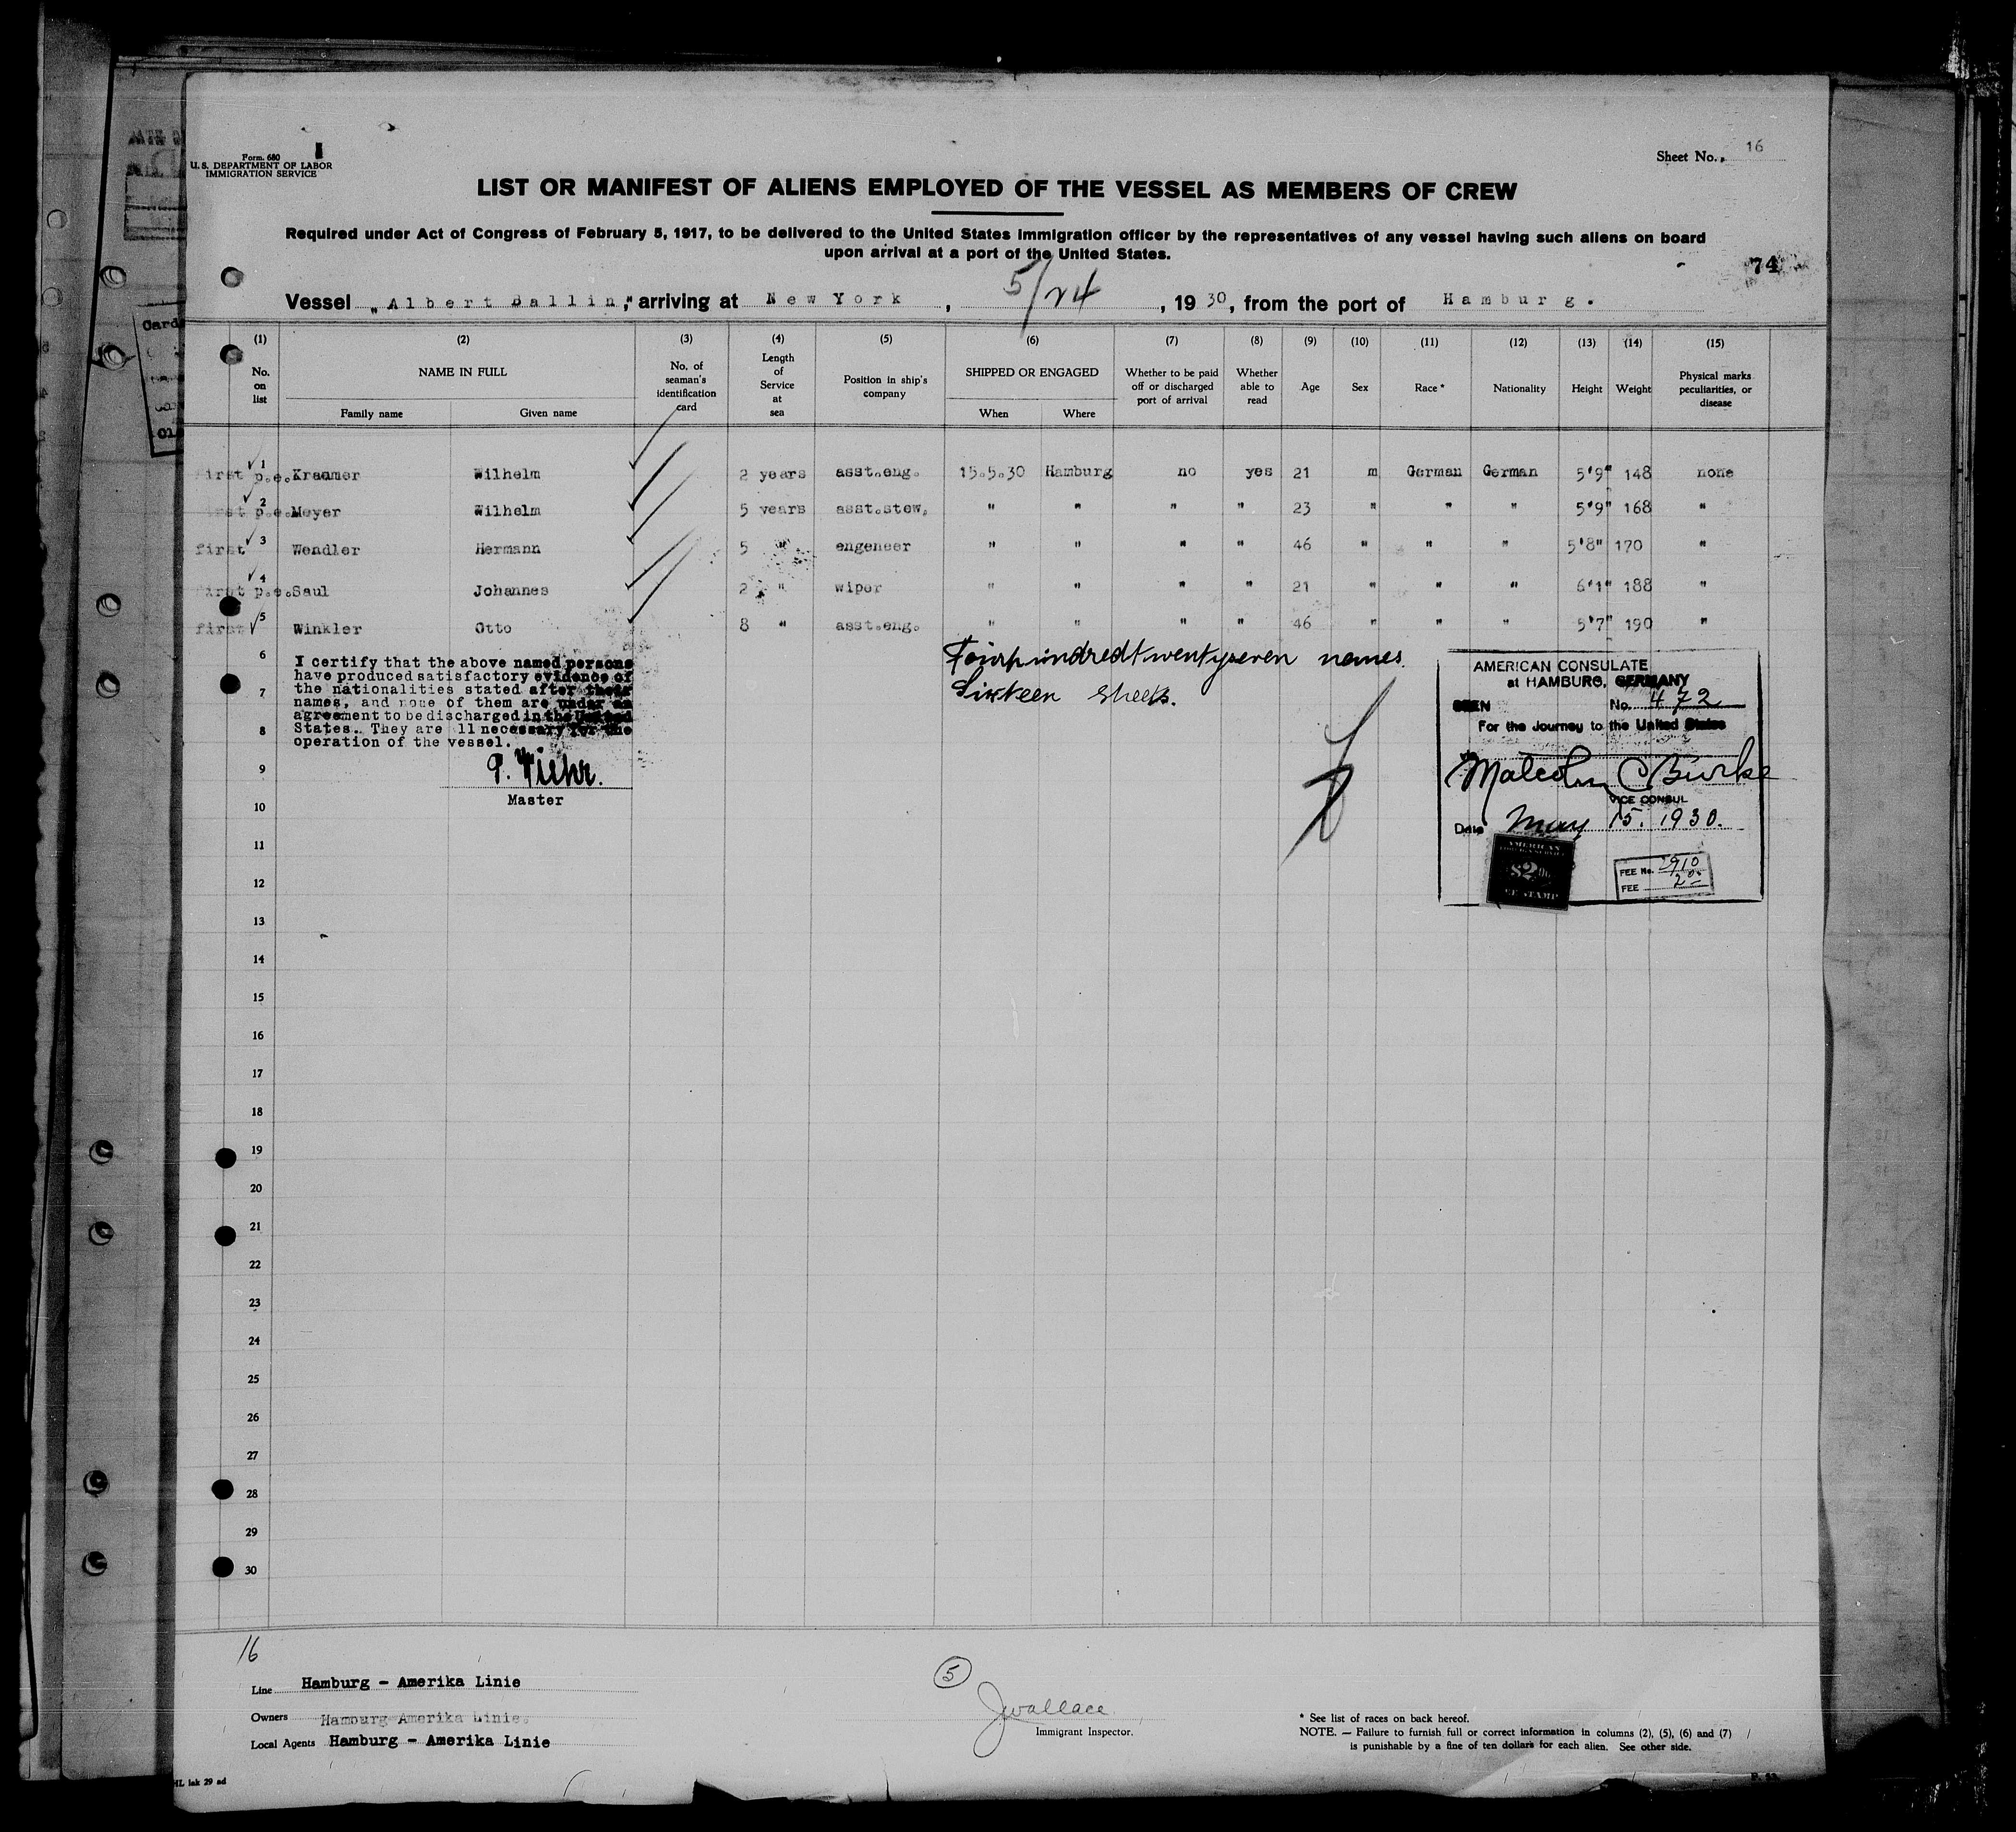 Form. 680
U. S. DEPARTMENT OF LABOR
IMMIGRATION SERVICE
Sheet No. 16
LIST OR MANIFEST OF ALIENS EMPLOYED OF THE VESSEL AS MEMBERS OF CREW
Required under Act of Congress of February 5, 1917, to be delivered to the United States immigration officer by the representatives of any vessel having such aliens on board
upon arrival at a port of the United States.
74
Vessel „Albert Ballin," arriving at New York, 5/24, 1930, from the port of Hamburg.
(1) (2) (3) (4) (5) (6) (7) (8) (9) (10) (11) (12) (13) (14) (15)
No. on list NAME IN FULL No. of seaman's identification card Length of Service at sea Position in ship's company SHIPPED OR ENGAGED Whether to be paid off or discharged port of arrival Whether able to read Age Sex Race * Nationality Height Weight Physical marks peculiarities, or disease
Family name Given name When Where
first p.e. 1 Kraemer Wilhelm 2 years asst.eng. 15.5.30 Hamburg no yes 21 m German German 5'9" 148 none
first p.e. 2 Meyer Wilhelm 5 years asst.stew. " " " " 23 " " " 5'9" 168 "
first 3 Wendler Hermann 5 " engeneer " " " " 46 " " " 5'8" 170 "
first p.e. 4 Saul Johannes 2 " wiper " " " " 21 " " " 6'1" 188 "
first 5 Winkler Otto 8 " asst.eng. " " " " 46 " " " 5'7" 190 "
6
7
8
9
10
11
12
13
14
15
16
17
18
19
20
21
22
23
24
25
26
27
28
29
30
I certify that the above named persons
have produced satisfactory evidence of
the nationalities stated after their
names, and none of them are under an
agreement to be discharged in the United
States. They are all necessary for the
operation of the vessel.
P. Wiehr.
Master
Fourhundredtwentyseven names.
Sixteen sheets.
AMERICAN CONSULATE
at HAMBURG, GERMANY
SEEN No. 472
For the Journey to the United States
Malcolm C Burke
VICE CONSUL
Date May 15. 1930.
AMERICAN
FOREIGN SERVICE
$2.00
FEE STAMP
FEE No. 2910
FEE 2 00
16
Line Hamburg - Amerika Linie
Owners Hamburg-Amerika Linie.
Local Agents Hamburg - Amerika Linie
5
J Wallace
Immigrant Inspector.
* See list of races on back hereof.
NOTE. — Failure to furnish full or correct information in columns (2), (5), (6) and (7)
is punishable by a fine of ten dollars for each alien. See other side.